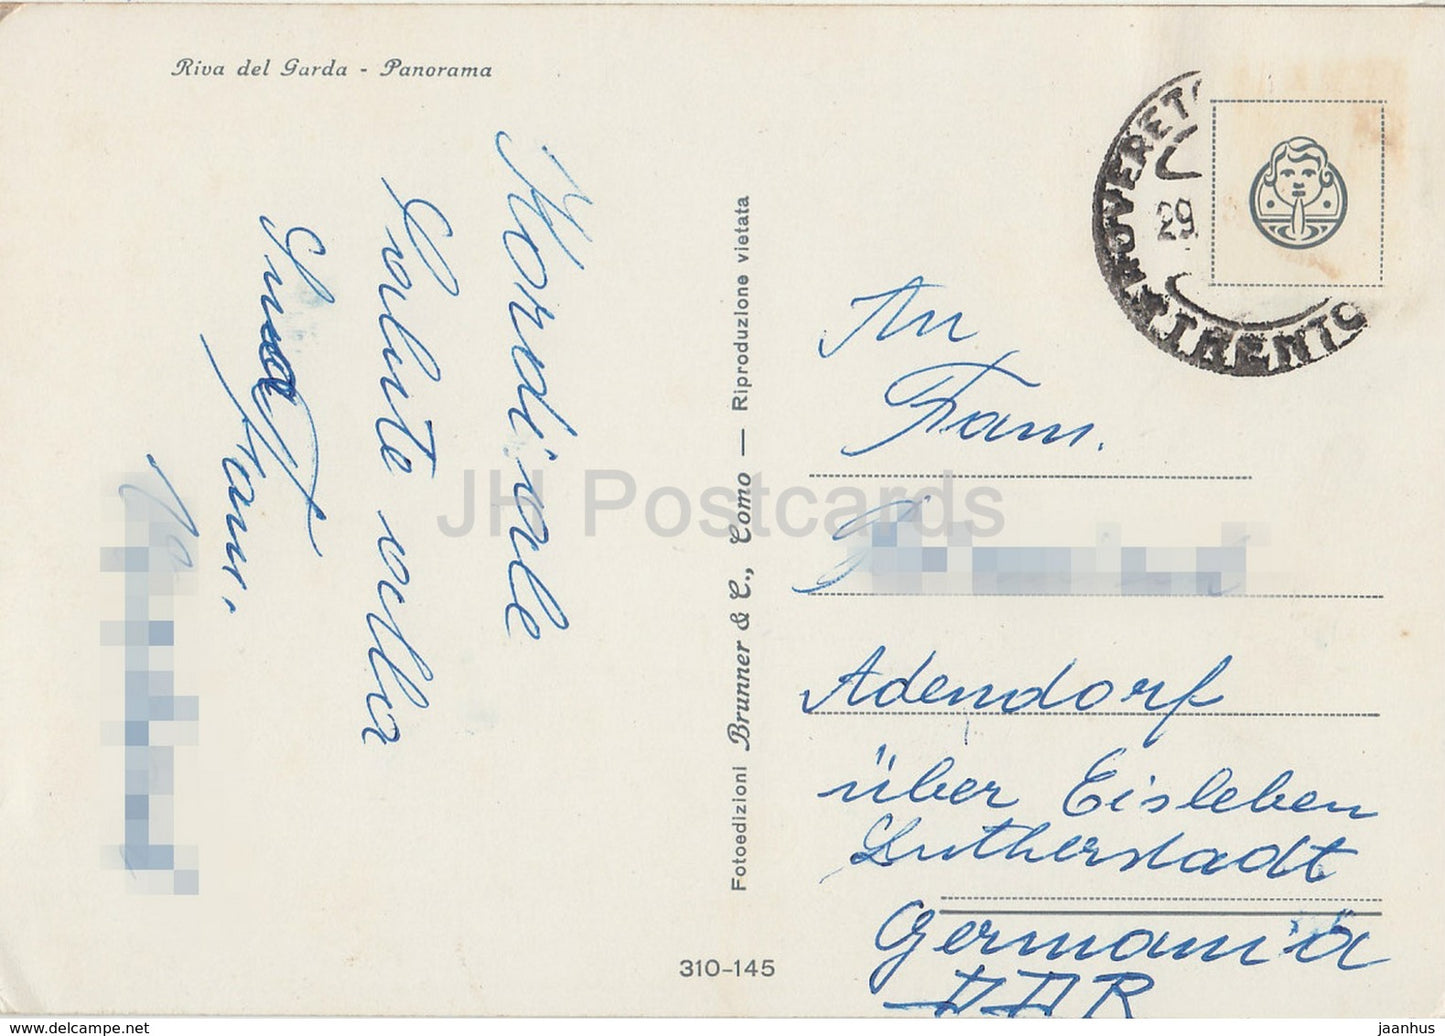 Riva del Garda - Panorama
Kordiale
Salute alla
Fam.
Fotoedizioni Brunner & C., Como — Riproduzione vietata
310-145
ROVERETO
29.
TRENTO
An
Fam.
Adendorf
über Eisleben
Lutherstadt
Germania
DDR
JH Postcards
www.delcampe.net
jaanhus